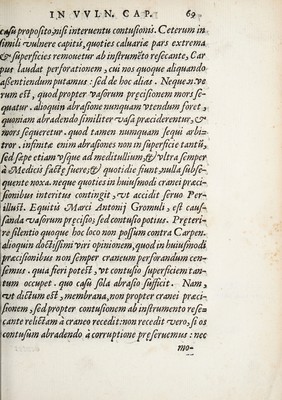 IN VVLN. CAP. 69
casu proposito, nisi interuentu contusionis. Ceterum in
simili vulnere capitis, quoties caluariæ pars extrema
& superficies remouetur ab instrumẽto resecante, Car
pus laudat perforationem, cui nos quoque aliquando
aßentiendum putamus: sed de hoc aliàs. Neque n. ve
rum est, quod propter vasorum pręcisionem mors se-
quatur. alioquin abrasione nunquam vtendum foret,
quoniam abradendo similiter vasa præciderentur, &
mors sequeretur. quod tamen nunquam sequi arbi-
tror. infinitæ enim abrasiones non in superficie tantũ,
sed sæpe etiam vsque ad meditullium, & vltra semper
à Medicis factę fuere, & quotidie fiunt, nulla subse-
quente noxa. neque quoties in huiusmodi cranei præci-
sionibus interitus contingit, vt accidit seruo Per
illust. Equitis Marci Antonij Gromuli, est caus-
sanda vasorum pręcisio; sed contusio potius. Præteri-
re silentio quoque hoc loco non possum contra Carpen.
alioquin doctissimi viri opinionem, quod in huiusmodi
præcisionibus non semper craneum perforandum cen-
semus. quia fieri potest, vt contusio superficiem tan-
tum occupet. quo casu sola abrasio sufficit. Nam,
vt dictum est, membrana, non propter cranei præci-
sionem, sed propter contusionem ab instrumento rese-
cante relictam à craneo recedit: non recedit vero, si os
contusum abradendo à corruptione preseruemus: nec
mo-